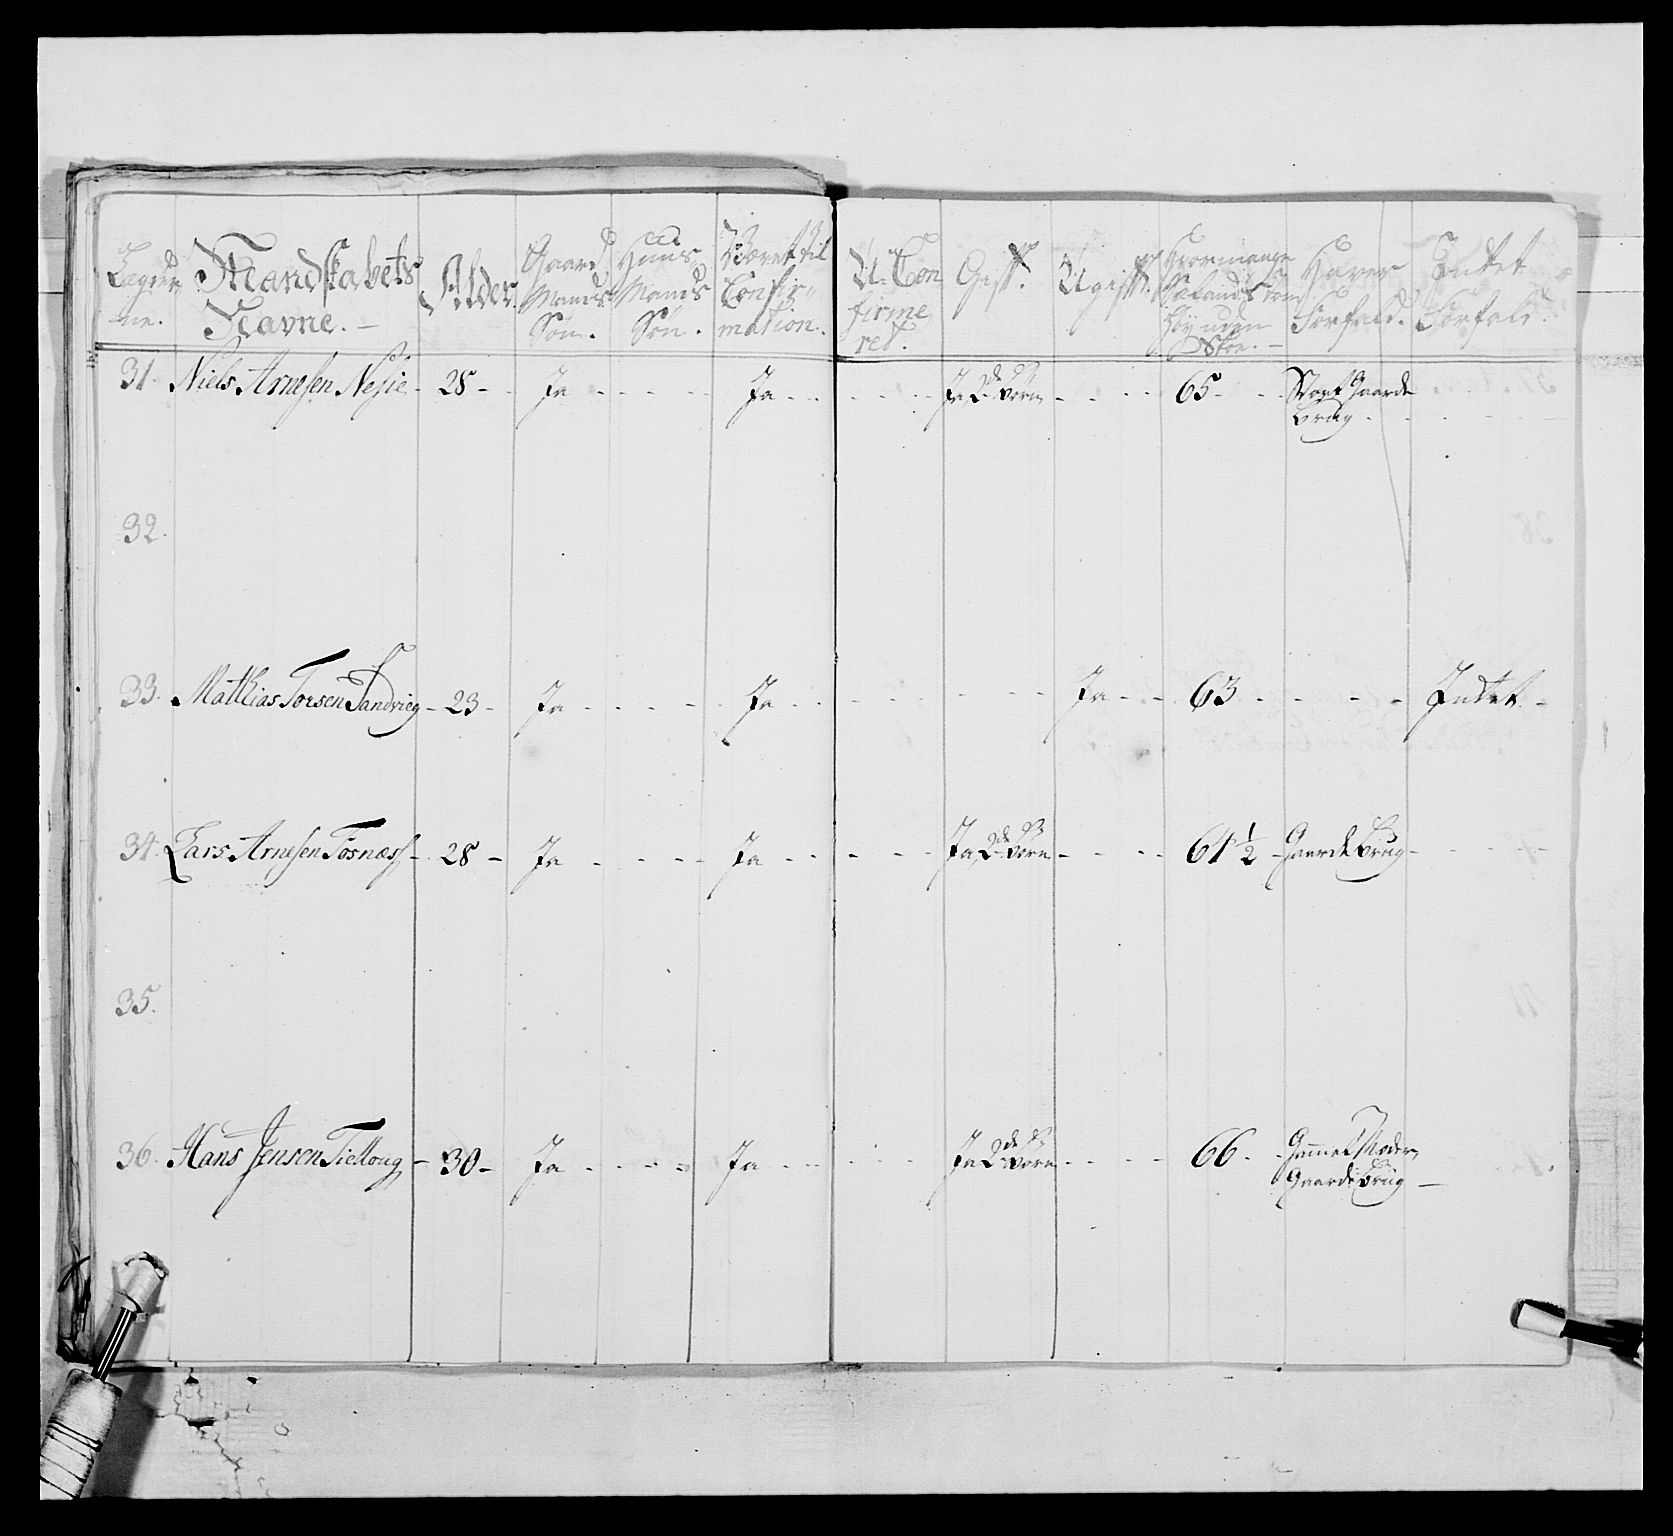 Lægderne. Mandskabets Navne. Alder. Gaard Mands Søn. Huus Mands Søn. Været til Confirmation. U-Confirmeret. Gift. Ugift. Hvormange Høy uden Skoe. Haver Forfald. Intet Forfald.
31. Niels Arnesen Nesie - 28 - Ja - - - Ja - - - Ja 2de Børn - - - 65 - - Stort Gaards
Brug
32.
33. Mathias Torsen Sandvieg - 23 - Ja - - - Ja - - - Ja - - 63 - - - Intet -
34. Lars Arnesen Fosnæss - 28 - Ja - - - Ja - - - Ja 2de Børn - - - 64 1/2 - Gaards Brug - - -
35.
36. Hans Jensen Tielloug - 30 - Ja - - - Ja - - - Ja 2de Børn - - - 66 - - Gammel Moder,
Gaards Brug -